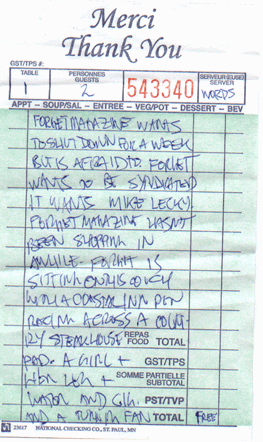 Merci
Thank You
GST/TPS #:
TABLE
PERSONNES
GUESTS
SERVEUR(EUSE)
SERVER
1
2
543340
WORDS
APPT - SOUP/SAL - ENTREE - VEG/POT - DESSERT - BEV
FORGET MAGAZINE WANTS
TO SHUT DOWN FOR A WEEK
BUT IS AFRAID TO FORGET
WANTS TO BE SYNDICATED
IT WANTS MIKE LECKY
FORGET MAGAZINE HASN'T
BEEN SHOPPING IN
AWHILE. FORGET IS
SITTING ON ITS
WITH A COASTAL INN PEN
RACING ACROSS A COUNT-
RY STEAKHOUSE
REPAS
FOOD TOTAL
PAD. A GIRL +
GST/TPS
HER +
SOMME PARTIELLE
SUBTOTAL
WATER AND
PST/TVP
AND A TURNING FAN
TOTAL
FREE
23617
NATIONAL CHECKING CO., ST. PAUL, MN